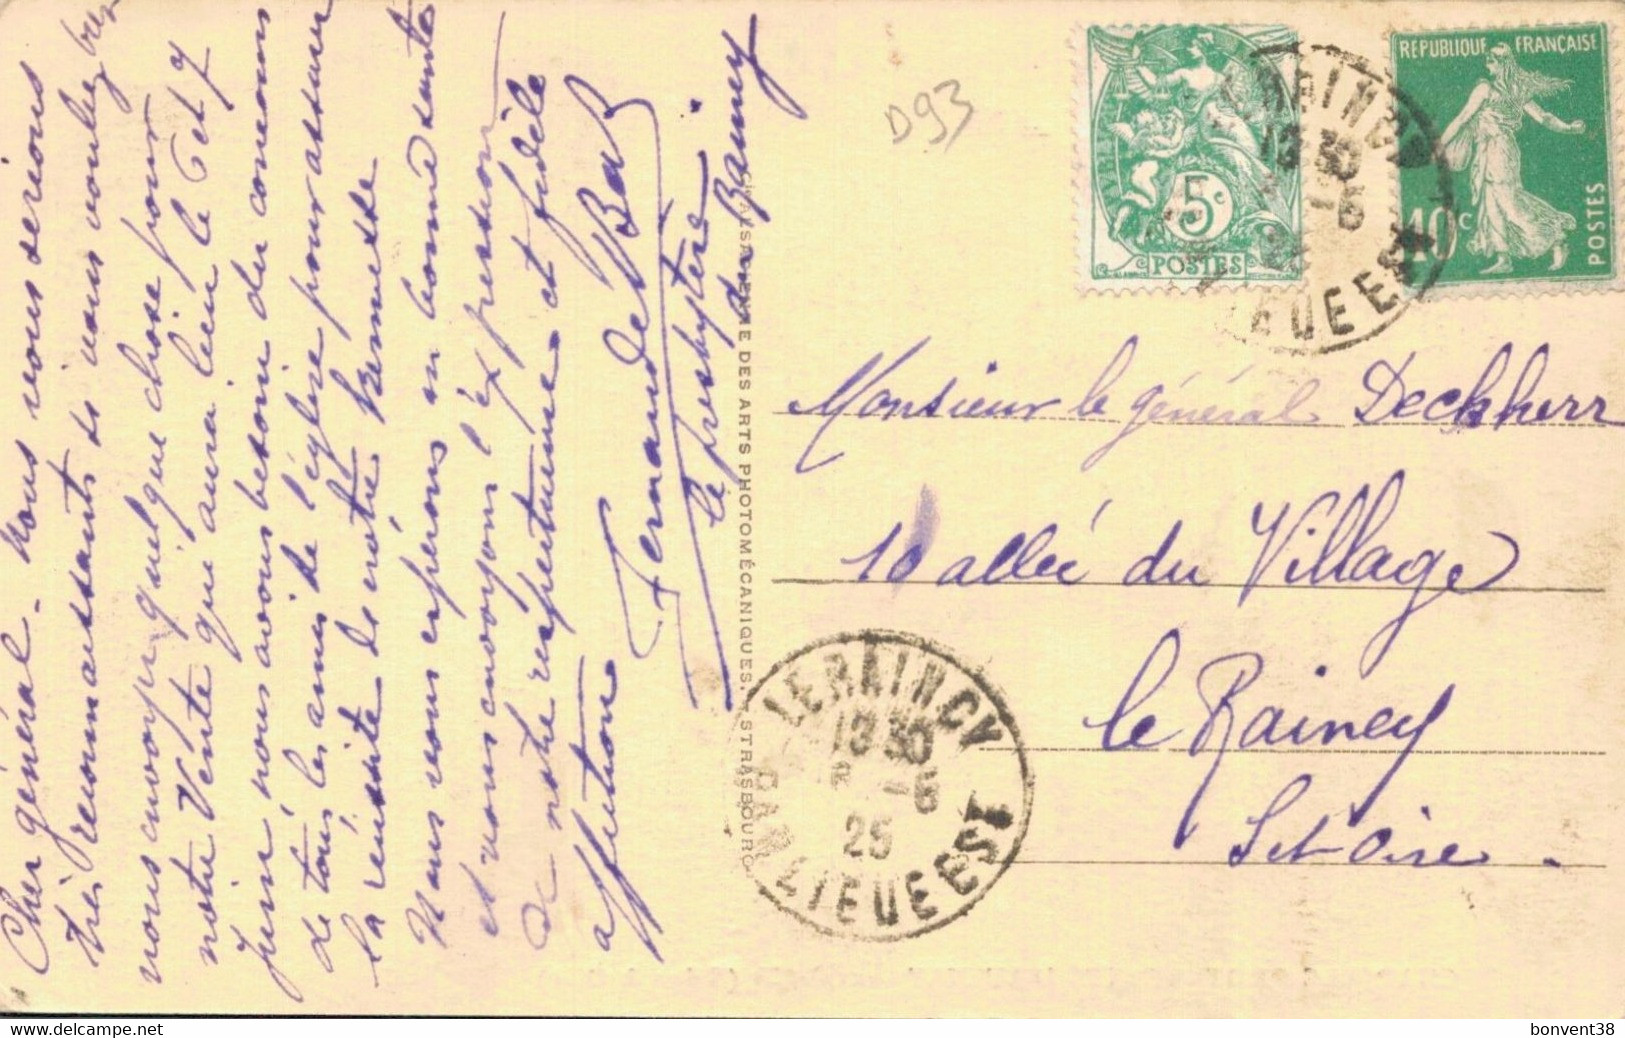 Cher général. Nous vous serions
très reconnaissants si vous vouliez bien
nous envoyer quelque chose pour
notre Vente qui aura lieu le 6 et 7
juin, nous avons besoin du concours
de tous les amis de l'église pour assurer
la réussite de notre kermesse
Nous vous espérons en bonne santé
et vous envoyons l'expression
de notre respectueuse et fidèle
affection
Fernande
le presbytère
du Rainey
D93
5c
POSTES
REPUBLIQUE FRANÇAISE
10c
POSTES
LE RAINCY
13 30
-6
BANLIEUE EST
Monsieur le général Deckherr
10 allée du Village
le Rainey
Set Oise.
LE RAINCY
13 30
-6
25
BANLIEUE EST
DES ARTS PHOTOMÉCANIQUES. STRASBOURG
delcampe.net
bonvent38